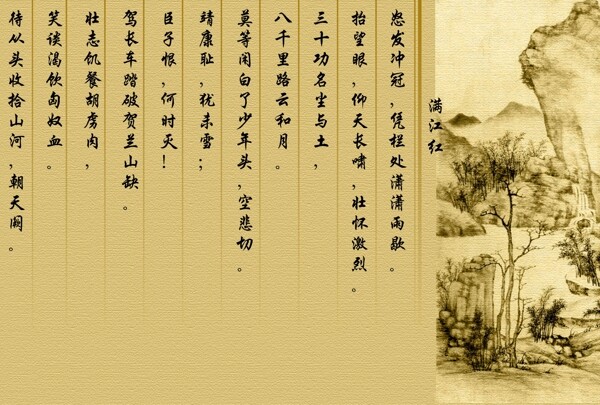 满江红
怒发冲冠,凭栏处潇潇雨歇。
抬望眼,仰天长啸,壮怀激烈。
三十功名尘与土,
八千里路云和月。
莫等闲白了少年头,空悲切。
靖康耻,犹未雪;
臣子恨,何时灭!
驾长车踏破贺兰山缺。
壮志饥餐胡虏肉,
笑谈渴饮匈奴血。
待从头收拾山河,朝天阙。